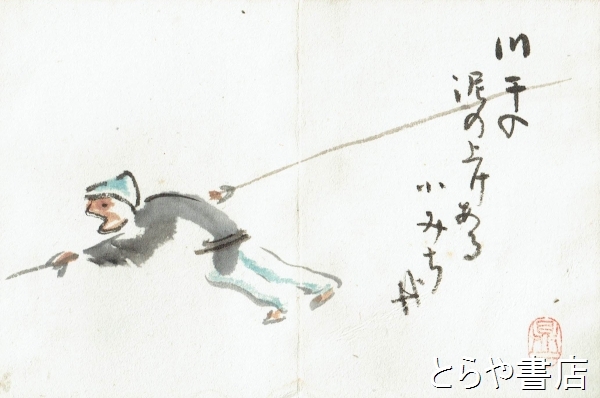 川干の
泥の上けある
小みち哉
とらや書店